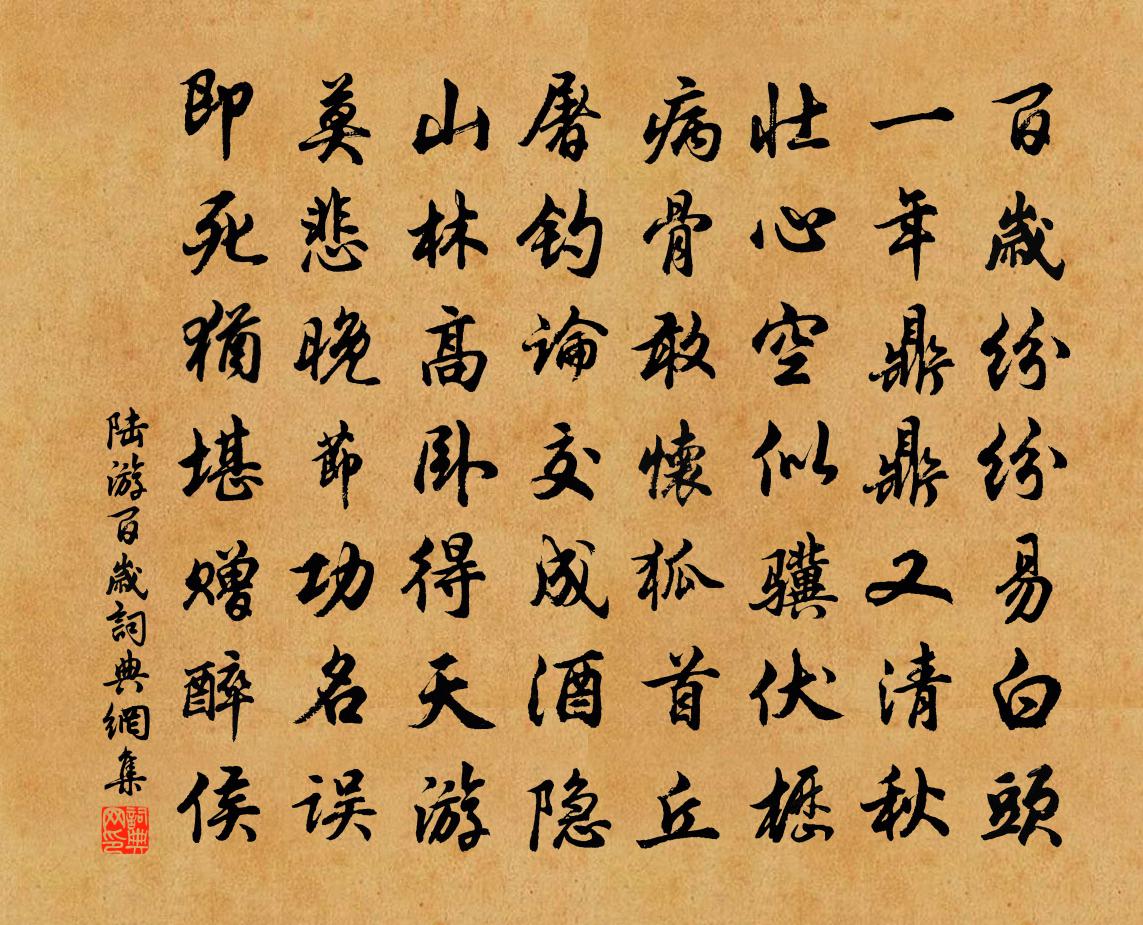 百歲紛紛易白頭
一年鼎鼎又清秋
壯心空似驥伏櫪
病骨敢懷狐首丘
屠釣論交成酒隐
山林高卧得天游
莫悲晚節功名误
即死猶堪贈醉侯
陆游百歲詞典網集
詞典网印